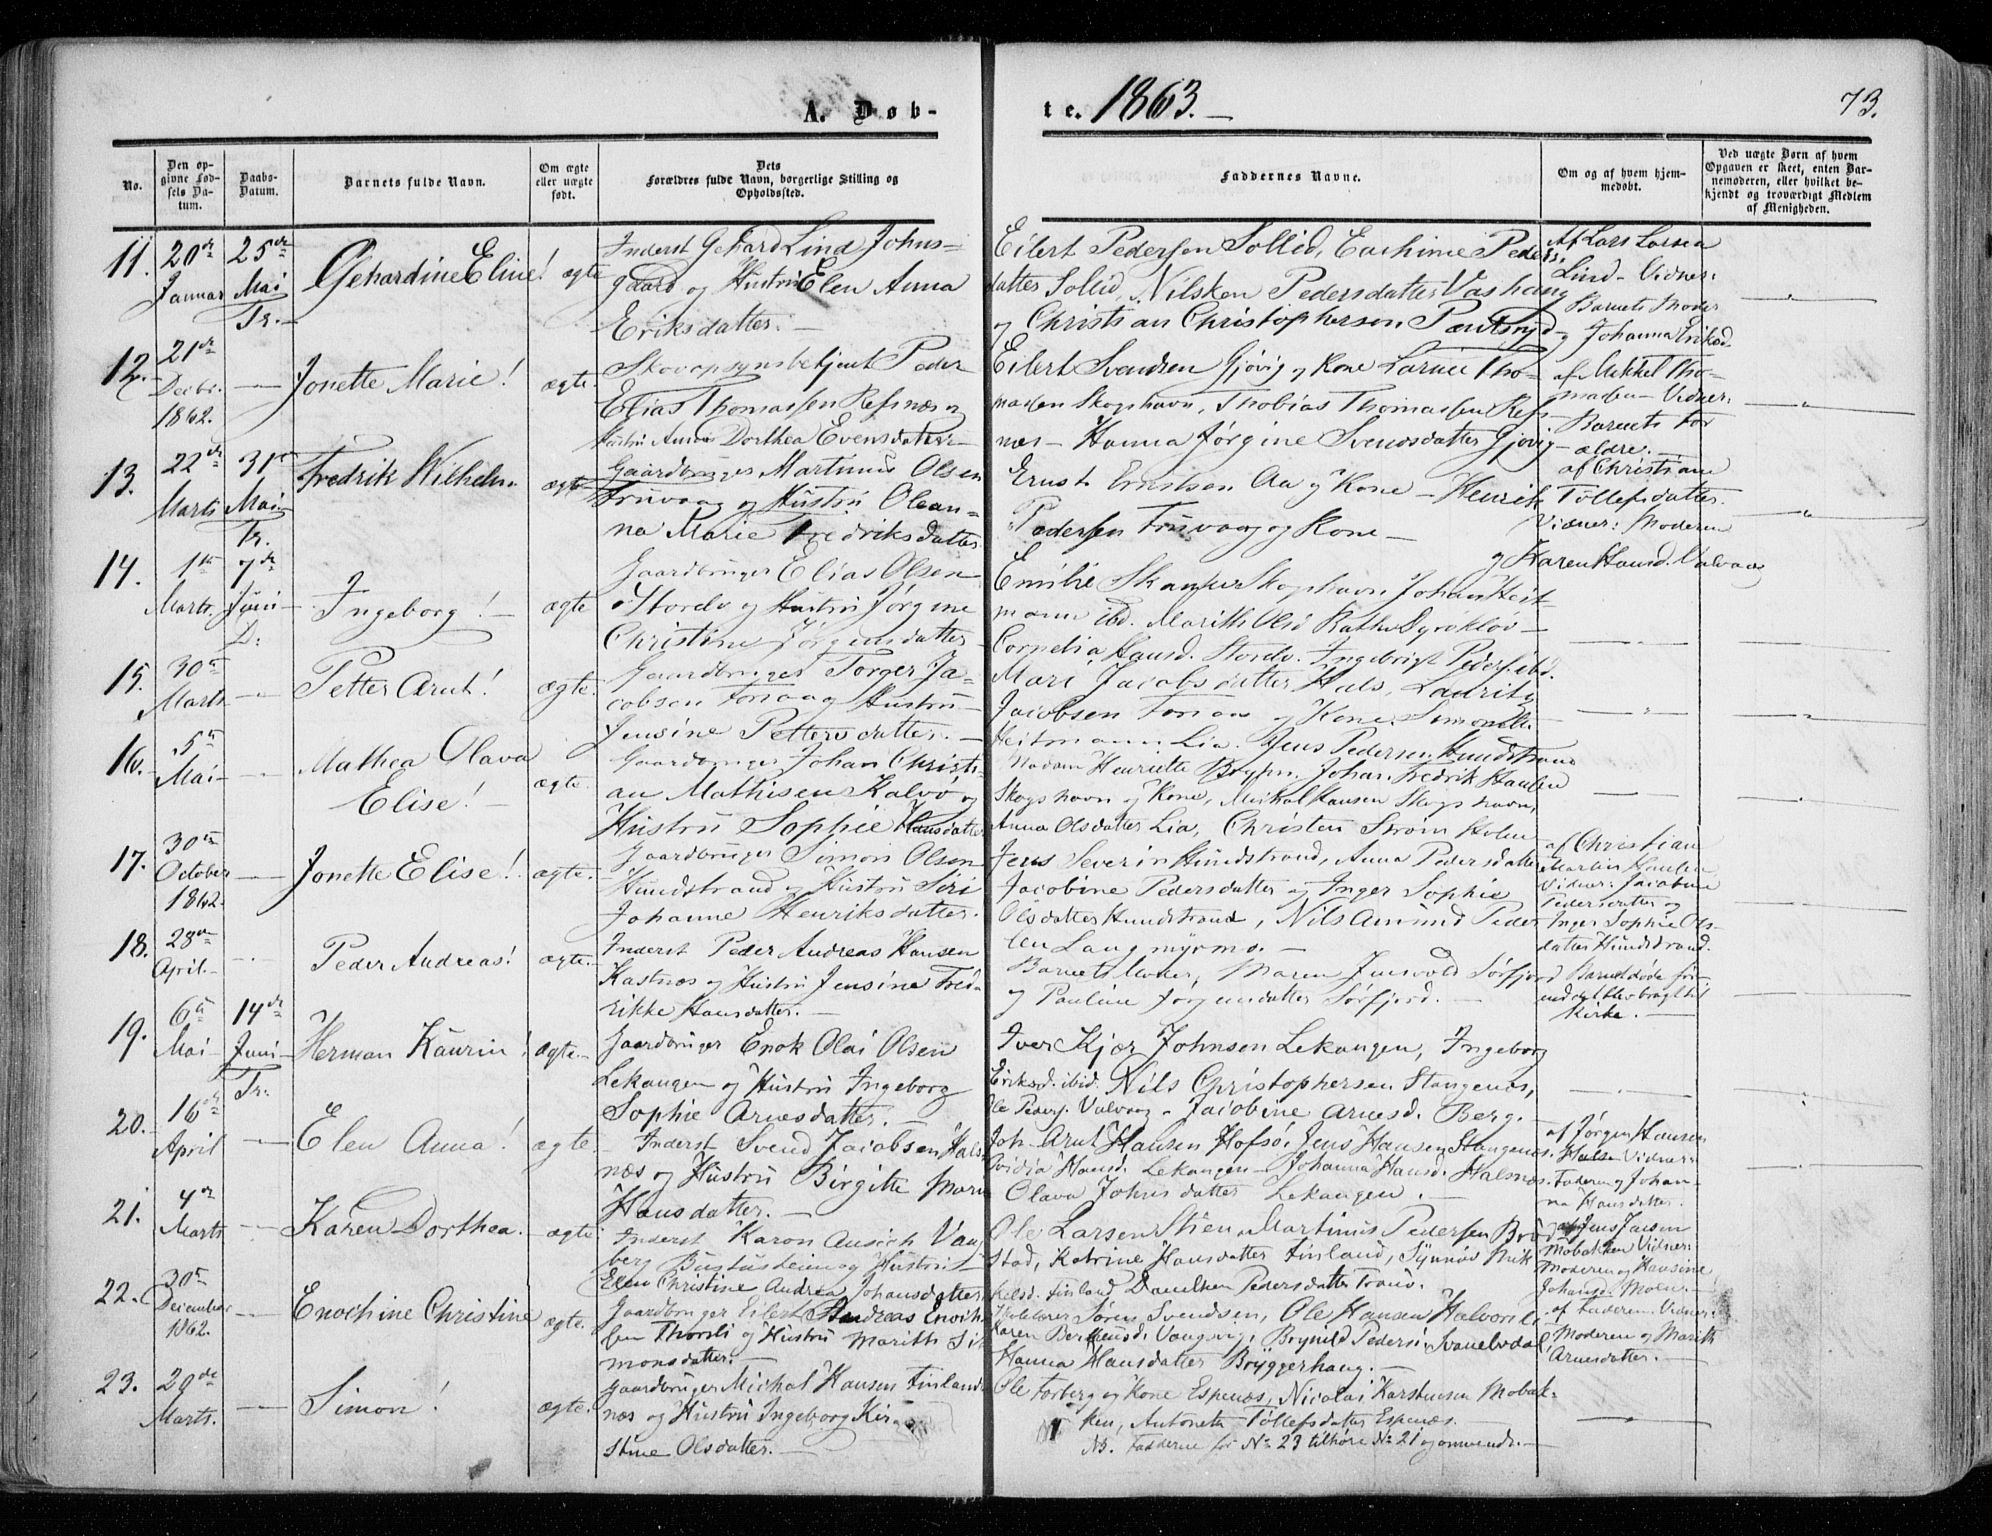 A. Døb-
te. 1863.
73.
No.
Den opgivne Fødsels Datum.
Daabs-Datum.
Barnets fulde Navn.
Om ægte eller uægte født.
Dets Forældres fulde Navn, borgerlige Stilling og Opholdssted.
Faddernes Navne.
Om og af hvem hjemmedøbt.
Ved uægte Børn af hvem Opgaven er skeet, enten Barnemoderen, eller hvilket bekjendt og troværdigt Medlem af Menigheden.
11.
20de Januar
25de Mai Tr.
Gehardine Eline!
ægte
Inderst Gehard Lind Johns-
gaard og Hustru Elen Anna
Eriksdatter.
Eilert Pedersen Sollid, Peders
datter Sollid, Nilsken Pedersdatter Vashaug
og Christian Christophersen
Af Lars Larsen
Lind - Vidner:
Barnets Moder
og Johanna Eriksd.
12.
21de Decbr. 1862.
Jonette Marie!
ægte.
Skovopsynsbetjent Peder
Elias Thomassen Refsnæs og
Hustru Dorthea Evensdatter
Eilert Svendsen Gjøvig og Kone Tho-
massen Skogshavn, Thobias Thomassen Refs-
næs - Hanna Jørgine Svendsdatter Gjøvig
af Mikkel Tho-
massen - Vidner:
Barnets For
ældre.
13.
22de Marts
31te Mai Tr.
Fredrik Wilhelm.
ægte
Gaardbruger Martinus Olsen
Trivaag og Hustru Olean-
na Marie Fredriksdatter
Ernst Erntsen Aa og Kone - Henrik
Pedersen Trivaag og Kone -
af Christiane
Tollefsdatter.
Vidner: Moderen
og Karen Hansd. Valvaag
14.
1ste Marts
7de Juni D:
Ingeborg!
ægte
Gaardbruger Elias Olsen
Stordv og Hustru Jørgine
Christine Jørgensdatter
Emilie Skogshavn, Johan Heit-
mann ibd. Marith Olsd.
Cornelia Hansd. Stordv. Ingebrigt Peders. ibd.
15.
30te Marts
Petter Arnt!
ægte.
Gaardbruger Torger Ja-
cobsen og Hustru
Jensine Pettersdatter.
Mari Jacobsdatter Hals, Lauritz
Jacobsen og Kone,
Heitmann Lia. Jens Pedersen Hundstrand
16.
5te Mai
Mathea Olava
Elise!
ægte.
Gaardbruger Johan Christi-
an Mathisen Kalvø og
Hustru Sophie Hansdatter
Madam Henriette Johan Fredrik Hansen
Skogshavn og Kone, Mikal Hansen Skogshavn,
Anna Olsdatter Lia, Christen Strøm Holm
17.
30te October 1862
Jonette Elise!
ægte.
Gaardbruger Simon Olsen
Hundstrand og Hustru Siri
Johanne Henriksdatter.
Jens Severin Hundstrand, Anna Pedersdatter
Jacobine Pedersdatter og Inger Sophie
Olsdatter Hundstrand, Nils Peder
sen Langmyrmo.
af Christian
Martin Hansen
Vidner: Jacobine
Pedersdatter og
Inger Sophie Ols-
datter Hundstrand.
18.
28de April
Peder Andreas!
ægte.
Inderst Peder Andreas Hansen
Kastnæs og Hustru Jensine Fred-
rikke Hansdatter.
Barnets Moder, Maren Jensvold Sørfjord
og Pauline Jørgensdatter Sørfjord.
Barnet døde før-
end det blev bragt til
Kirke.
19.
6te Mai
14de Juni Tr:
Herman Kaurin!
ægte
Gaardbruger Enok Olai Olsen
Lekangen og Hustru Ingeborg
Sophie Arnesdatter.
Iver Kjær Johnsen Lekangen, Ingeborg
Eriksd. ibid. Nils Christophersen Stangenæs,
Ole Peders. Valvaag - Jacobine Arnesd. Berg.
20.
16de April
Elen Anna!
ægte.
Inderst Svend Jacobsen Hals-
næs og Hustru Birgitte Marie
Hansdatter.
Joh. Arnt Hansen Hofsø, Jens Hansen Stangenæs.
Hansd. Lekangen - Johanna Hansd. Halsnæs.
Olava Johnsdatter Lekangen.
af Jørgen Hansen
Halsn. Vidner:
Faderen og Johan-
na Hansdatter.
21.
4de Marts
Karen Dorthea.
ægte
Inderst Karon Vang
berg og Hustru
Elen Christine Andrea Johansdatter
Ole Larsen Stien Martinus Pedersen Brød-
stad, Katrine Hansdatter Finland, Synnøv Mik
kelsd. Finland, Danilken Pedersdatter Tranø.
af Jens Jansen
Mobakken Vidner:
Moderen og Hansine
Johansd. Moen.
22.
30te December 1862.
Enochine Christine
ægte.
Gaardbruger Eilert Andreas Enoch-
sen Thorsli og Hustru Marith Si-
monsdatter.
Skolelærer Søren Svendsen, Ole Hansen Halvorsli
Karen Vangsvig, Brynild Peders. Svanelvdal
Hanna Hansdatter Bryggerhaug.
af Faderen. Vidner:
Moderen og Marith
Arnesdatter.
23.
29de Marts.
Simon!
ægte.
Gaardbruger Michal Hansen Finland-
næs og Hustru Ingeborg Kir-
stine Olsdatter.
Ole Torberg og Kone Espenæs, Nicolai Karstensen Mobak-
ken, Antonette Tollefsdatter Espenæs.
NB. Fadderne for No 23 tilhøre No 21 og omvendt.